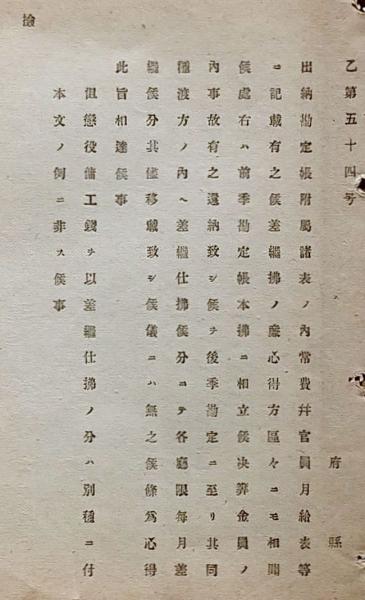 乙第五十四号
府縣
出納勘定帳附属諸表ノ內常費幷官員月給表等
ニ記載有之候差繼拂ノ廉心得方區々ニモ相聞
候處右ハ前季勘定帳本拂ニ相立候決算金員ノ
內事故有之還納致シ候ヲ後季勘定ニ至リ其同
種渡方ノ內ヘ差繼仕拂候分ニテ各廳限每月差
繼候分其儘移載致シ候儀ニハ無之候條爲心得
此旨相達候事
但懲役傭工錢ヲ以差繼仕拂ノ分ハ別種ニ付
本文ノ例ニ非ス候事